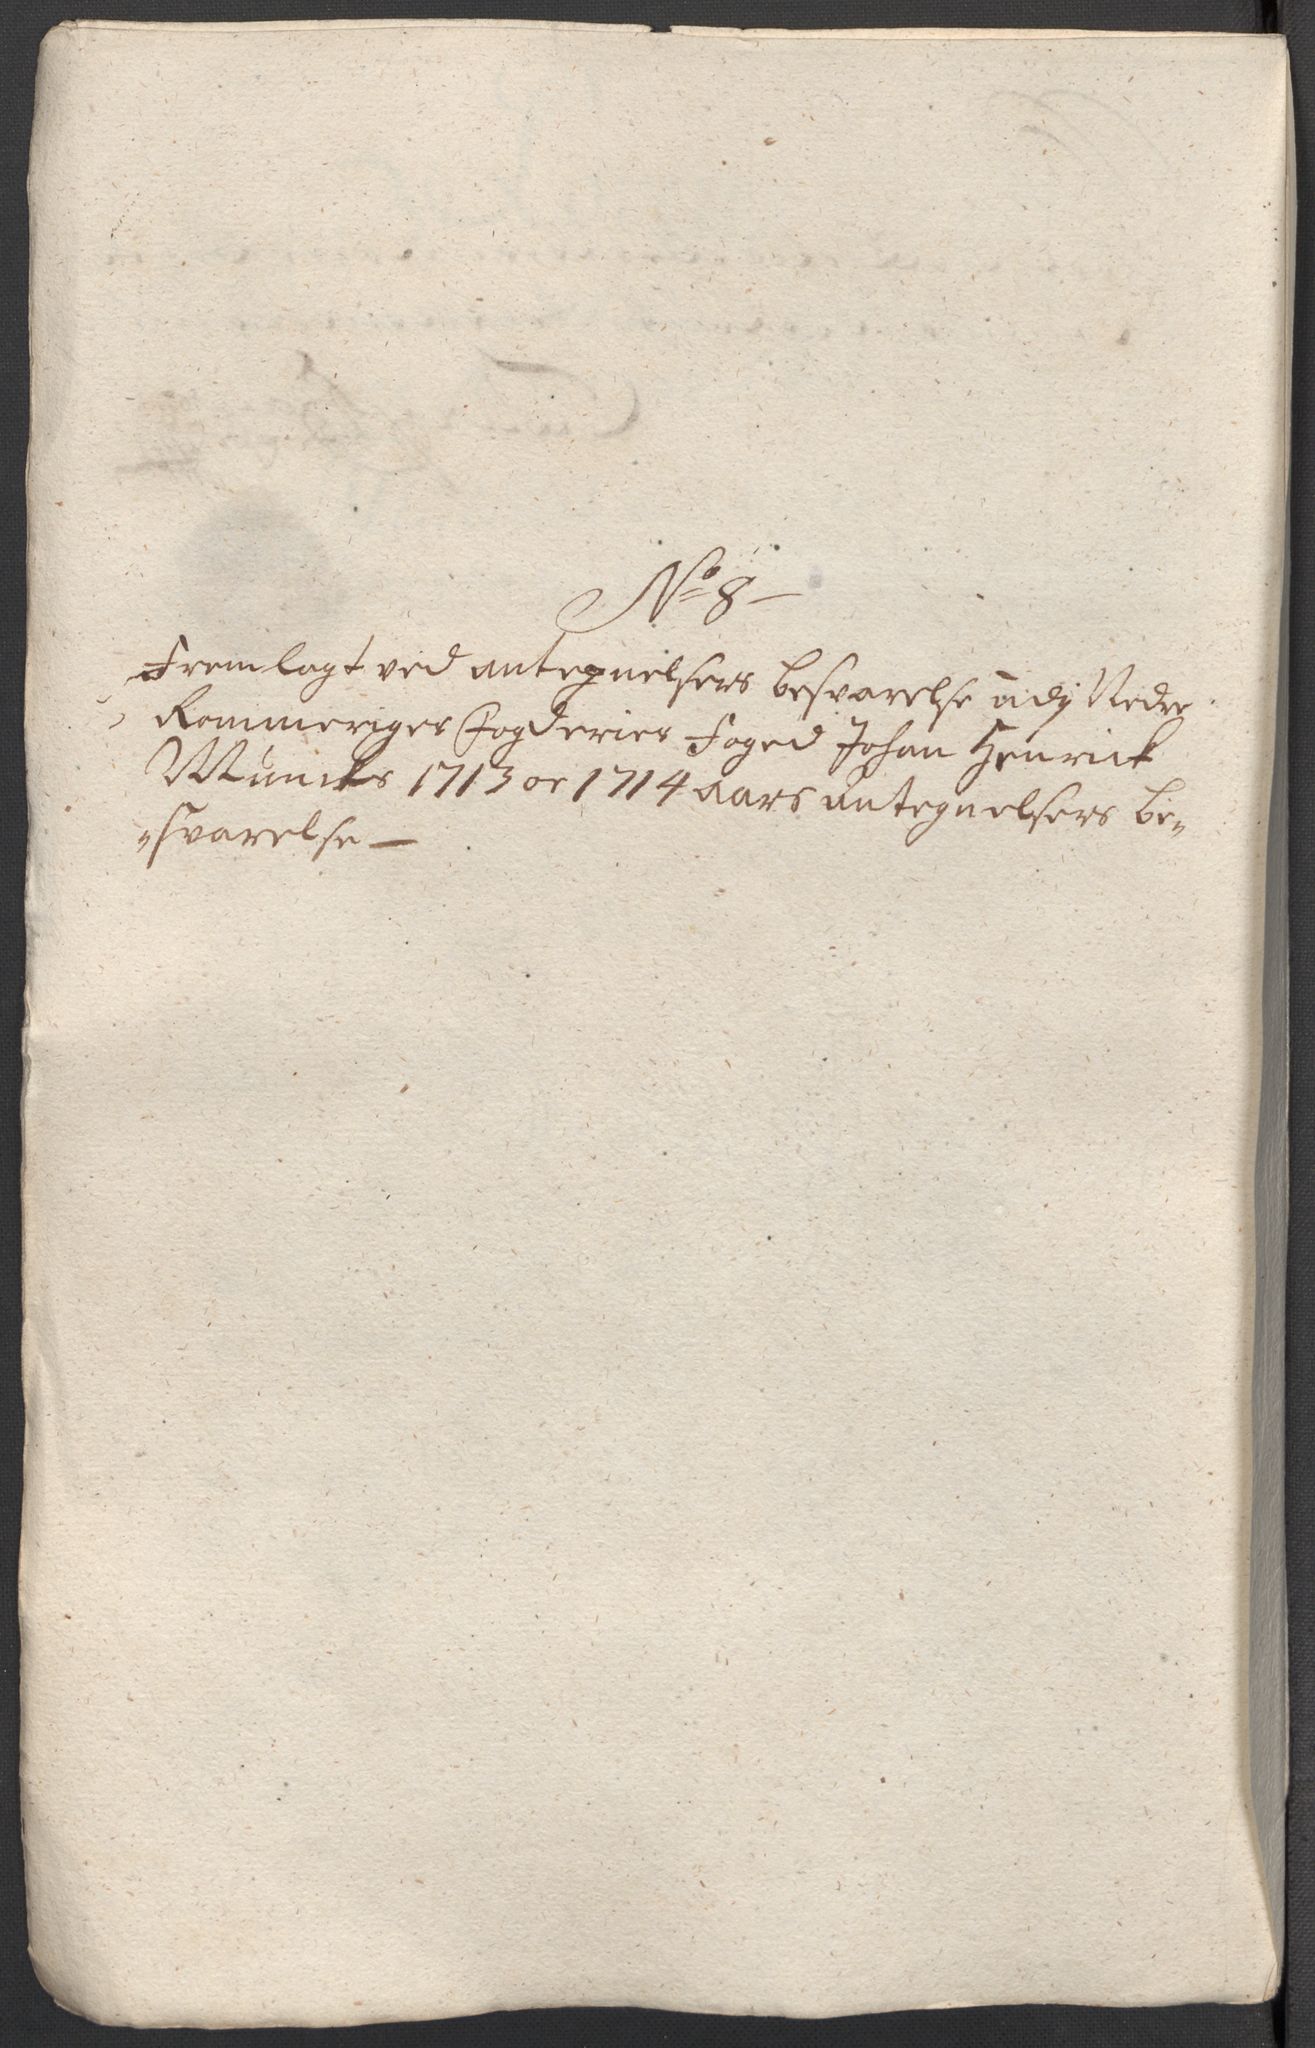 No 8 –
Fremlagt ved antegnelsers besvarelse udj Nedre
Rommeriges fogderies foged Johan Henrick
Muncks 1713 oc 1714 aars antegnelsers be„
„svarelse –